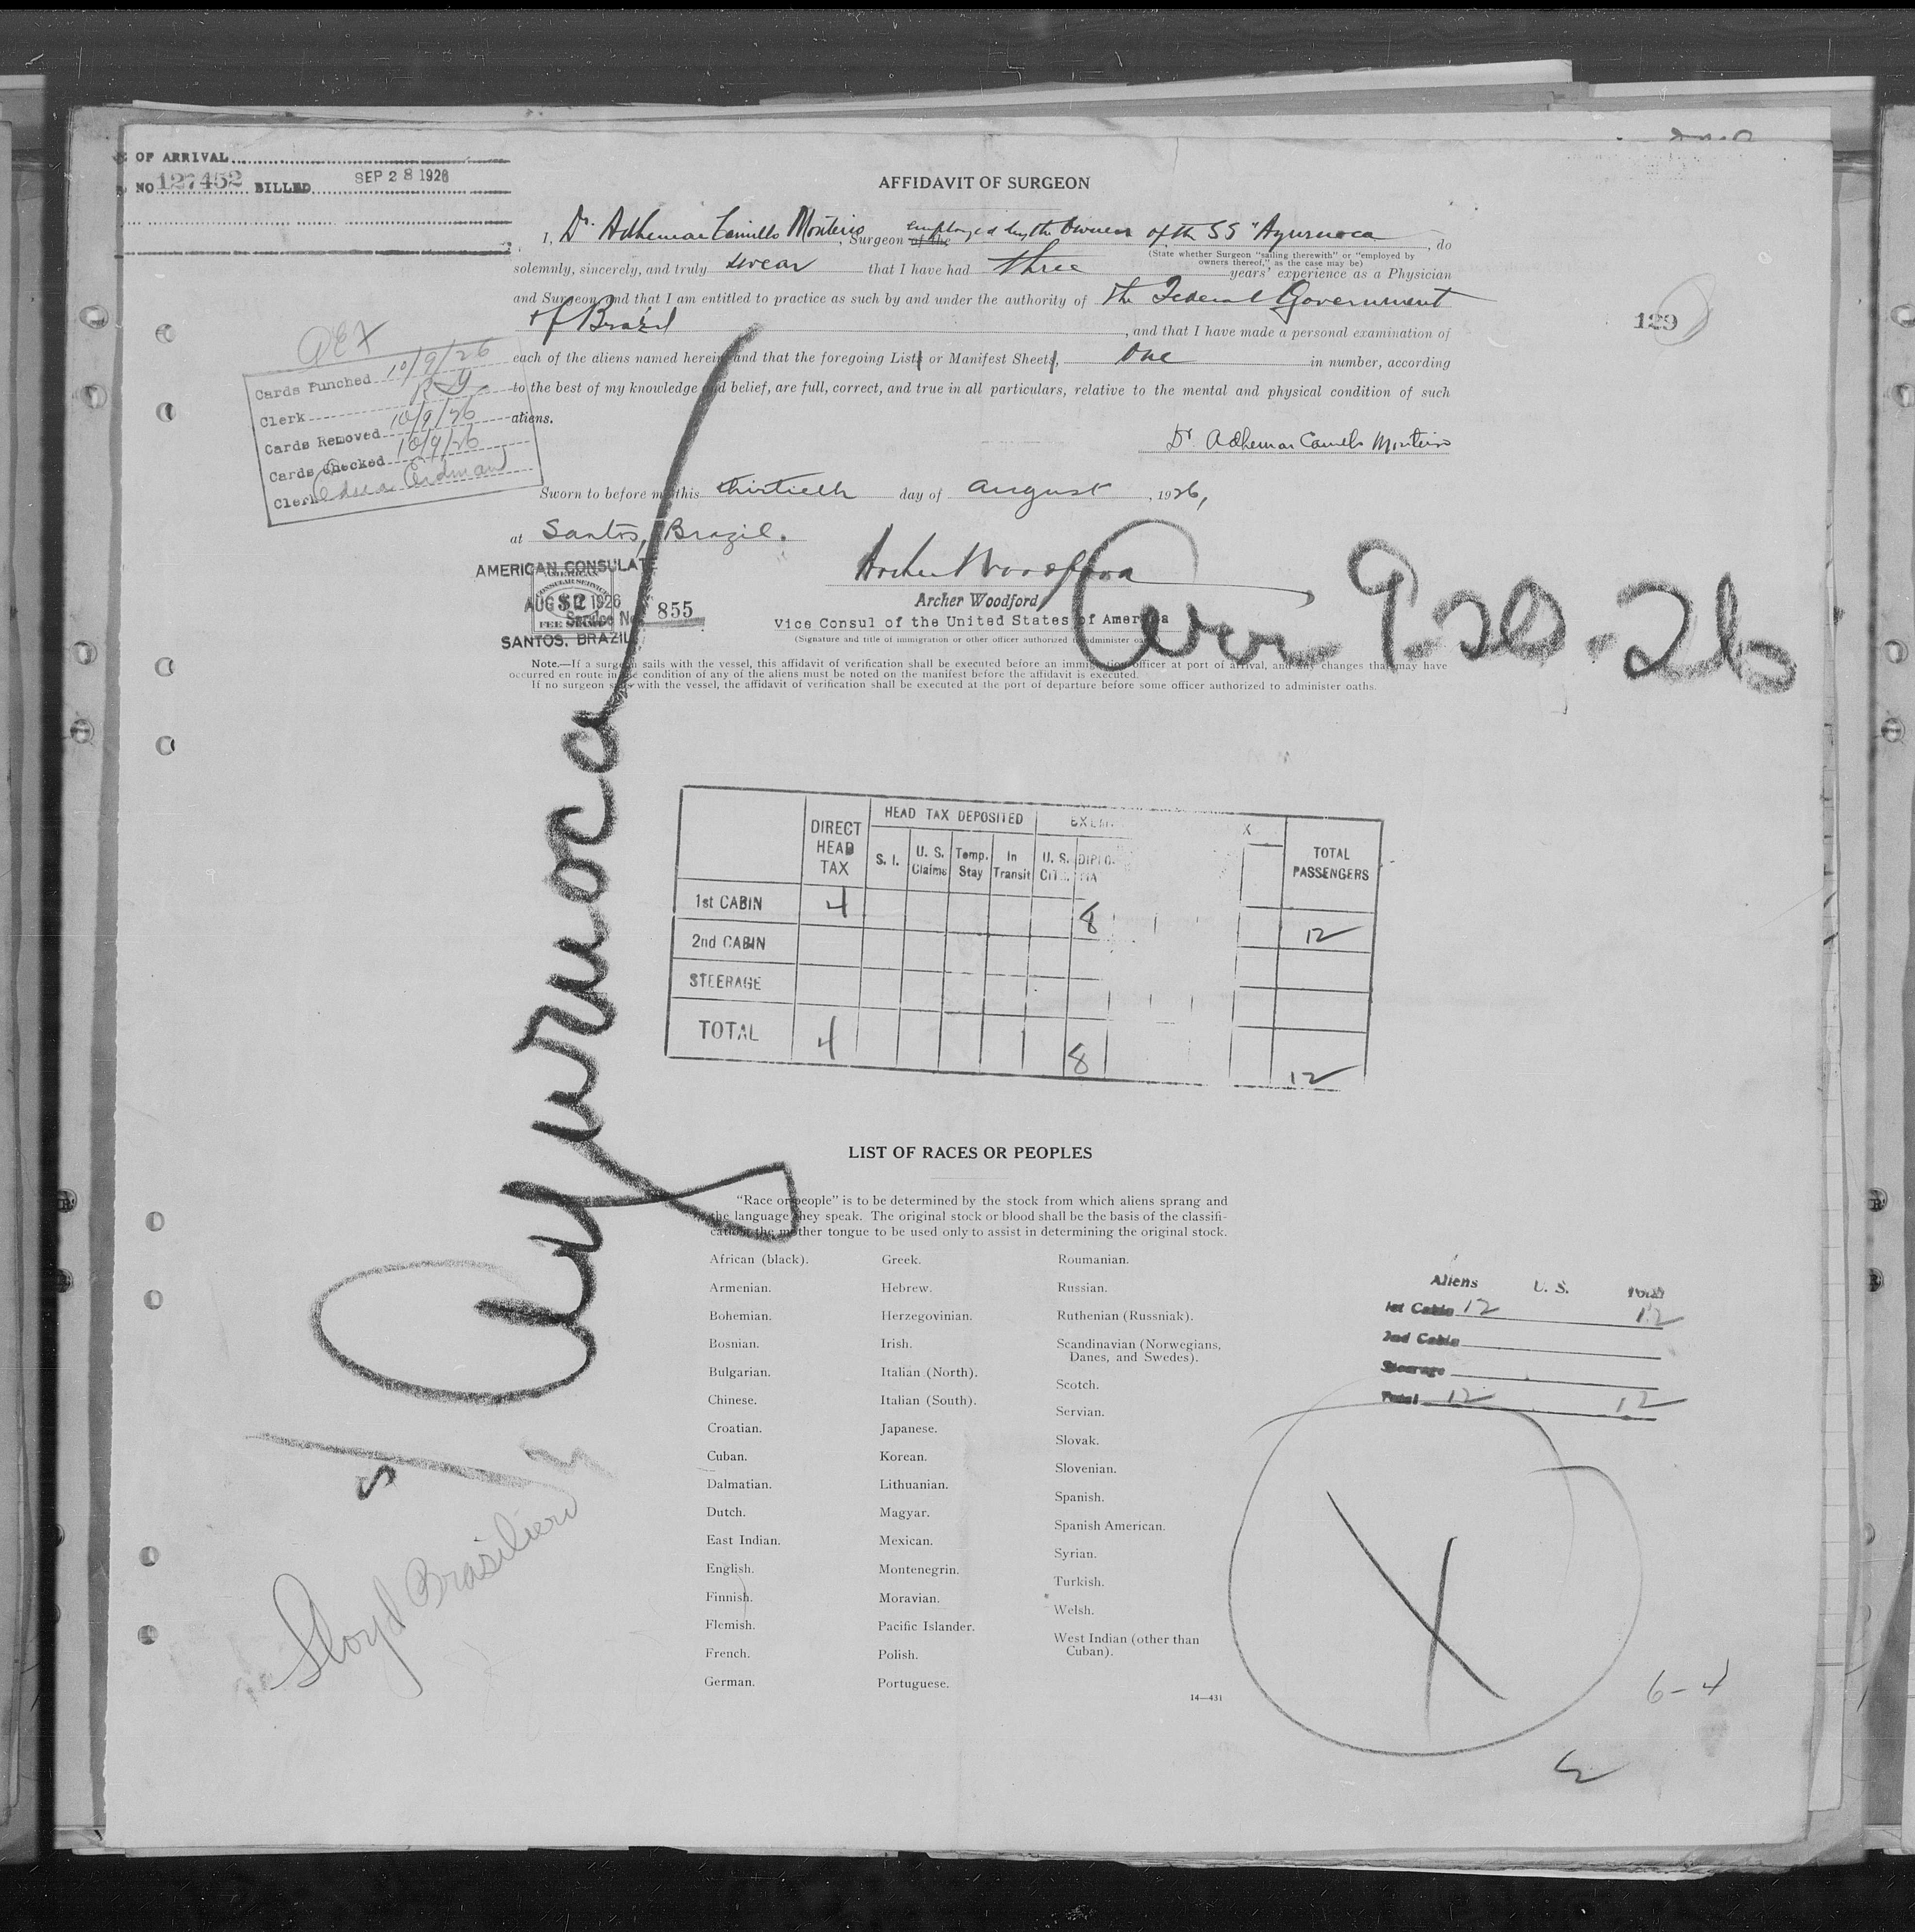 OF ARRIVAL
NO 127452 BILLED SEP 28 1926
AFFIDAVIT OF SURGEON
I, Dr. Adhemar Camillo Monteiro, Surgeon of the employed by the Owners of the SS "Ayuruoca, do
(State whether Surgeon "sailing therewith" or "employed by
owners thereof," as the case may be)
solemnly, sincerely, and truly swear that I have had three years' experience as a Physician
and Surgeon and that I am entitled to practice as such by and under the authority of the Federal Government
of Brazil, and that I have made a personal examination of
each of the aliens named herein and that the foregoing Lists or Manifest Sheets, One in number, according
to the best of my knowledge and belief, are full, correct, and true in all particulars, relative to the mental and physical condition of such
aliens.
Dr Adhemar Camillo Monteiro
129
Cards Punched 10/9/26
Clerk
Cards Removed 10/9/26
Cards Checked 10/9/26
Clerk Erdman
Sworn to before me this thirtieth day of August, 1926,
at Santos, Brazil.
Archer Woodford
Archer Woodford
Vice Consul of the United States of America
(Signature and title of immigration or other officer authorized to administer oaths)
AMERICAN CONSULATE
AMERICAN
CONSULAR SERVICE
AUG 1926
$2
Service No. 855
FEE STAMP
SANTOS, BRAZIL
Arr 9-20-26
Note.—If a surgeon sails with the vessel, this affidavit of verification shall be executed before an immigration officer at port of arrival, and any changes that may have
occurred en route in the condition of any of the aliens must be noted on the manifest before the affidavit is executed.
If no surgeon sails with the vessel, the affidavit of verification shall be executed at the port of departure before some officer authorized to administer oaths.
S/ Ayuruoca
Lloyd Brasileiro
HEAD TAX DEPOSITED
DIRECT HEAD TAX S. I. U. S. Claims Temp. Stay In Transit U. S. CIT. DIPLO. TOTAL PASSENGERS
1st CABIN 4 8 12
2nd CABIN
STEERAGE
TOTAL 4 8 12
LIST OF RACES OR PEOPLES
"Race or people" is to be determined by the stock from which aliens sprang and
the language they speak. The original stock or blood shall be the basis of the classifi-
cation, the mother tongue to be used only to assist in determining the original stock.
African (black).
Armenian.
Bohemian.
Bosnian.
Bulgarian.
Chinese.
Croatian.
Cuban.
Dalmatian.
Dutch.
East Indian.
English.
Finnish.
Flemish.
French.
German.
Greek.
Hebrew.
Herzegovinian.
Irish.
Italian (North).
Italian (South).
Japanese.
Korean.
Lithuanian.
Magyar.
Mexican.
Montenegrin.
Moravian.
Pacific Islander.
Polish.
Portuguese.
Roumanian.
Russian.
Ruthenian (Russniak).
Scandinavian (Norwegians,
Danes, and Swedes).
Scotch.
Servian.
Slovak.
Slovenian.
Spanish.
Spanish American.
Syrian.
Turkish.
Welsh.
West Indian (other than
Cuban).
14—431
Aliens U. S. Total
1st Cabin 12 12
2nd Cabin
Steerage
Total 12 12
X
6-4